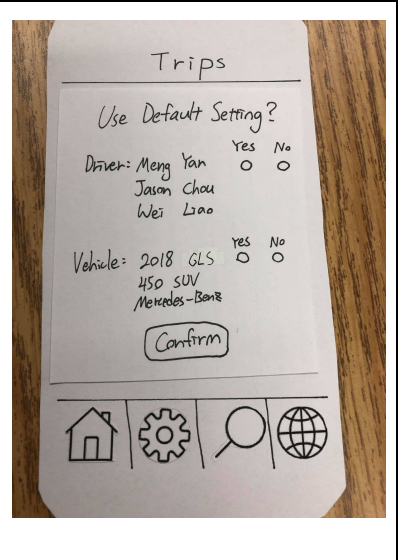 Trips
Use Default Setting?
Yes No
Driver: Meng Yan
Jason Chou
Wei Liao
Yes No
Vehicle: 2018 GLS
450 SUV
Mercedes-Benz
Confirm